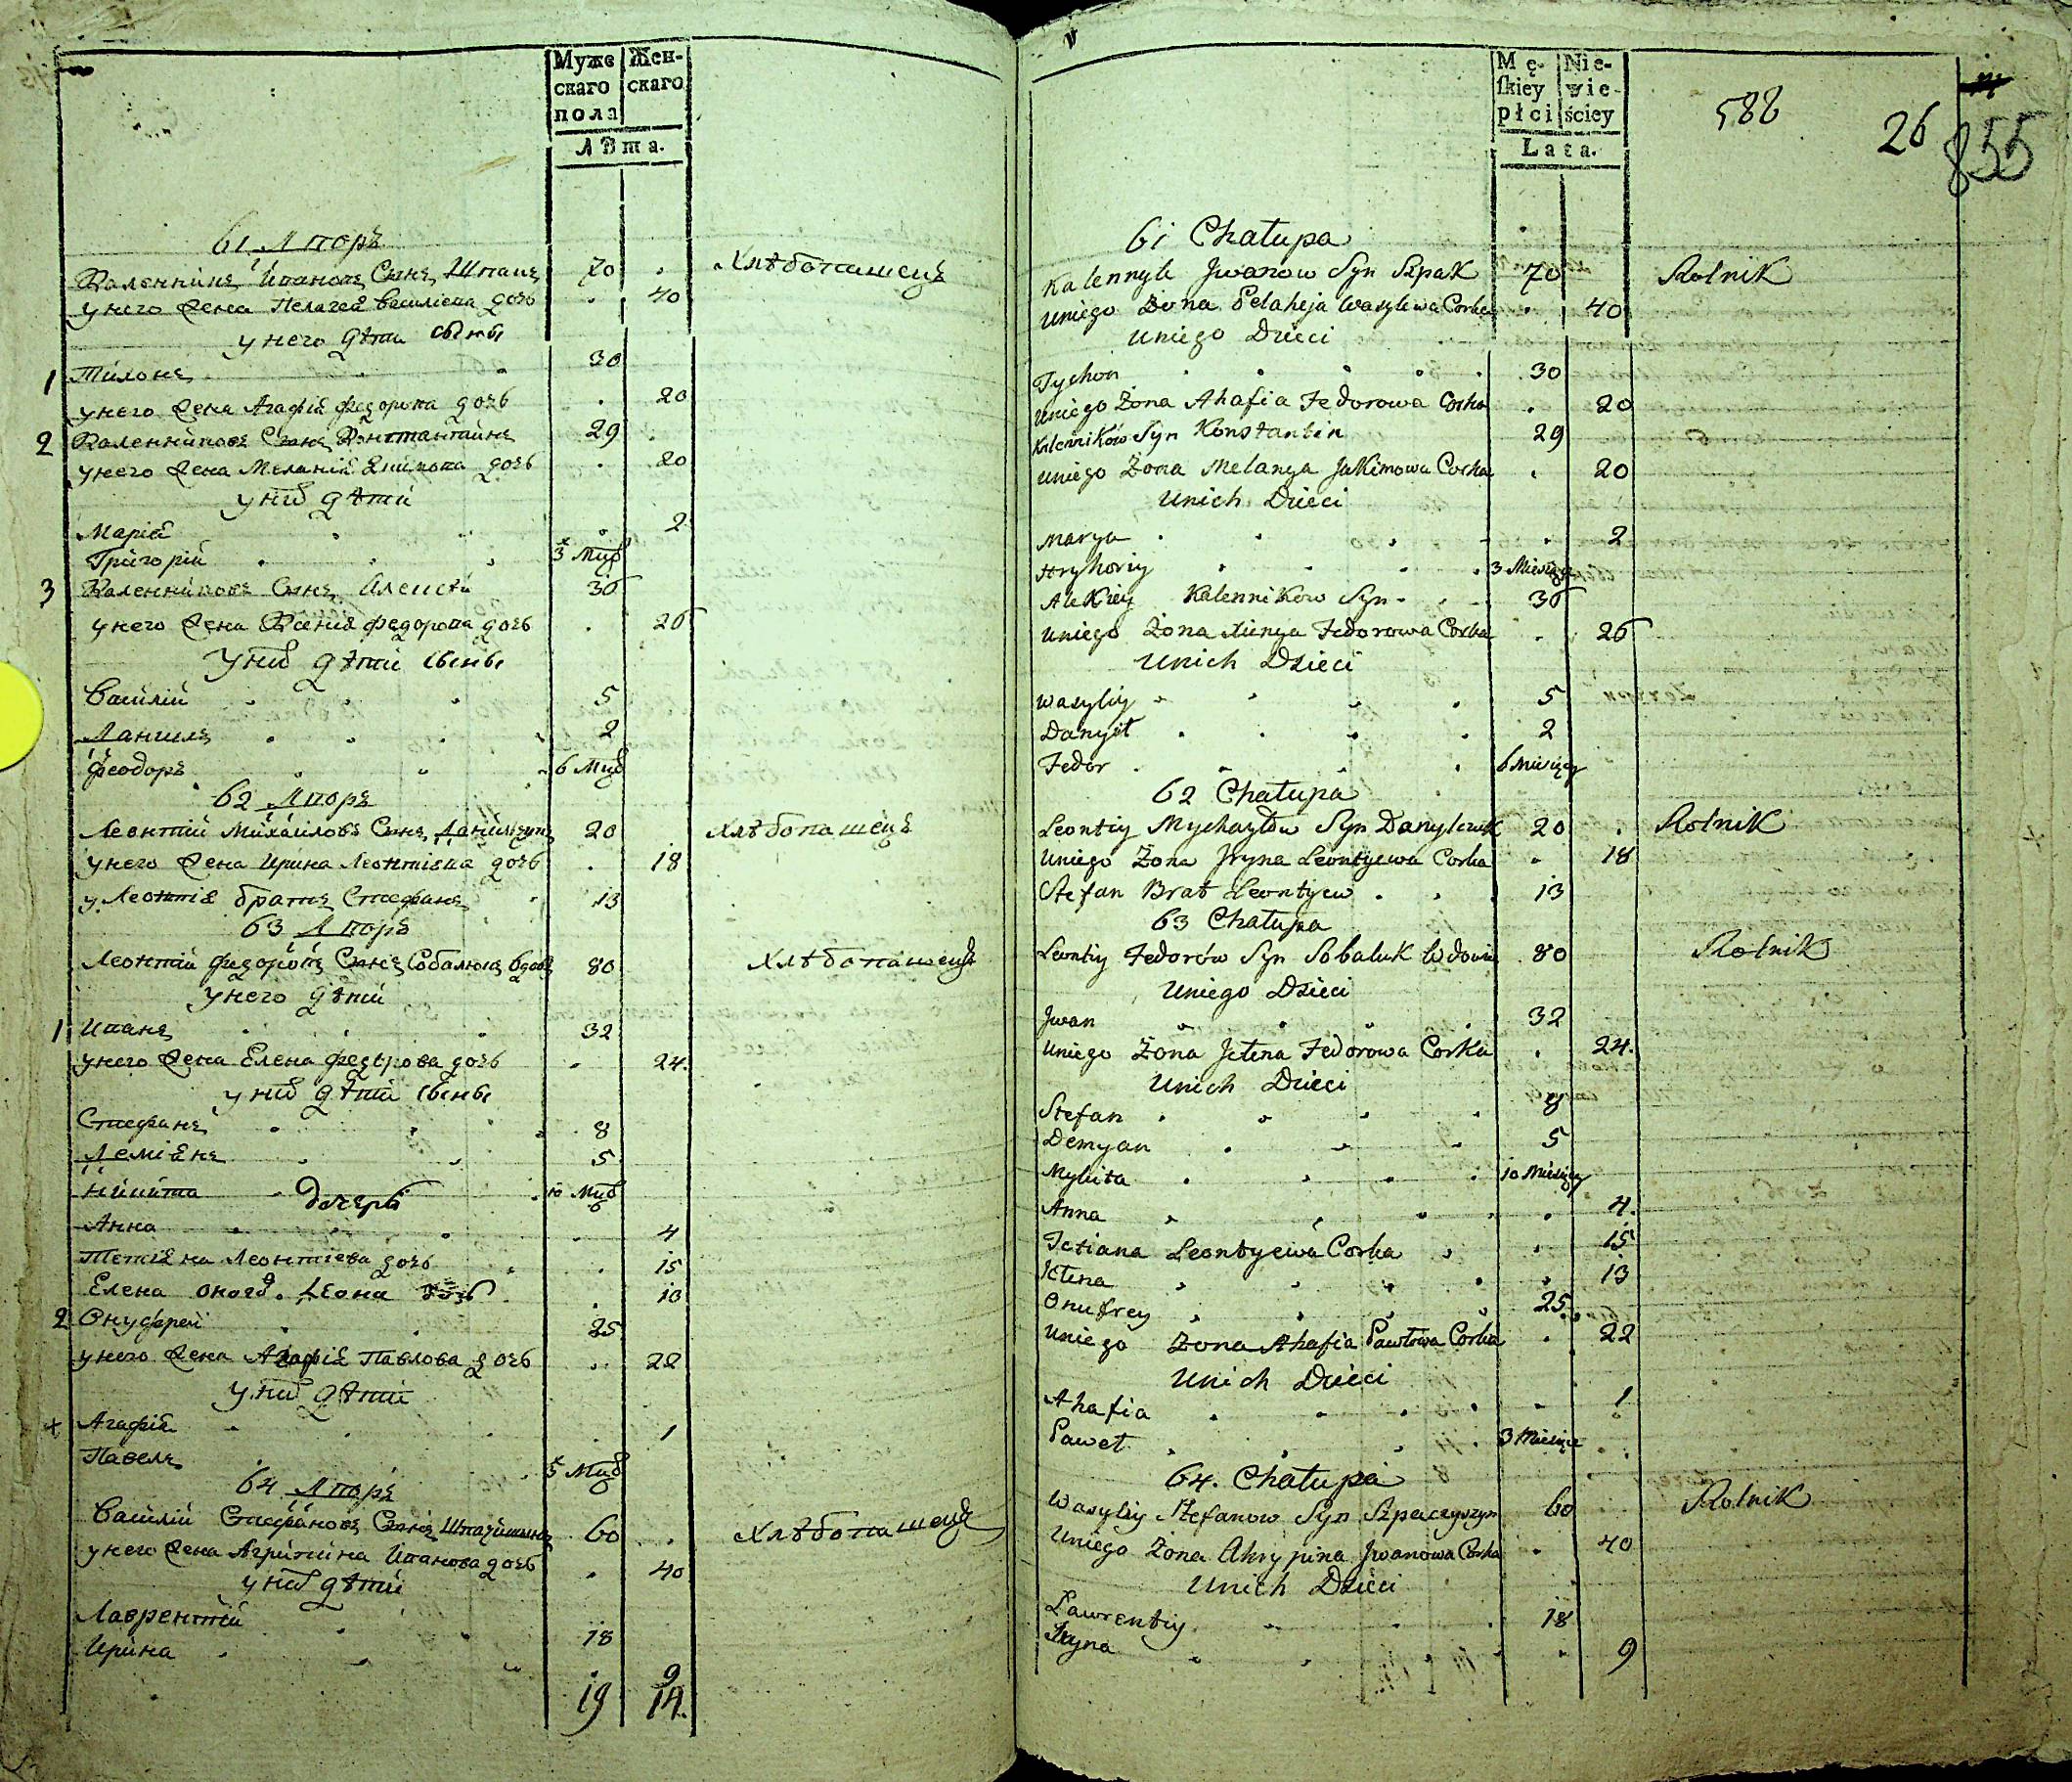 Муже Жен-
скаго скаго
пола
Лѣта.
61 Дворъ
Каленникъ Ивановъ Сынъ Шпакъ 70 Хлѣбопашецъ
у него жена Пелагея Василіева дочь 40
у него дѣти сыны
1 Тихонъ 30
у него жена Агафія Федорова дочь 20
2 Каленниковъ Сынъ Константинъ 29
у него жена Меланія Якимова дочь 20
у них дѣти
Марія 2
Григорій 3 Мцс
3 Каленниковъ Сынъ Алексѣй 36
у него жена Ксенія Федорова дочь 26
у них дѣти сыны
Василій 5
Данилъ 2
Феодоръ 6 Мцс
62 Дворъ
Леонтій Михайловъ Сынъ Данилчукъ 20 Хлѣбопашецъ
у него жена Ирина Леонтіева дочь 18
у Леонтія братъ Стефанъ 13
63 Дворъ
Леонтій Федоровъ Сынъ Собалюкъ вдовъ 80 Хлѣбопашецъ
у него дѣти
1 Иванъ 32
у него жена Елена Федорова дочь 24.
у них дѣти сыны
Стефанъ 8
Деміянъ 5
Никита 10 Мцс
дочерь
Анна 4
Тетіяна Леонтіева дочь 15
Елена 13
2 Онуфрей 25
у него жена Агафія Павлова дочь 22
у них дѣти
+ Агафія 1
Павелъ 3 Мцс
64 Дворъ
Василій Стефановъ Сынъ Шпачишинъ 60 Хлѣбопашецъ
у него жена Агрипина Иванова дочь 40
у них дѣти
Лаврентій 18
Ирина 9
19 14.
Mę- Nie-
skiey wie-
płci ściey
Lata.
588 26 855
61 Chałupa
Kalennyk Jwanow Syn Szpak 70 Rolnik
Uniego Żona Pelaheja Wasylewa Corka 40
Uniego Dzieci
Tychon 30
Uniego Żona Ahafia Fedorowa Corka 20
Kalenników Syn Konstantin 29
Uniego Żona Melanya Jakimowa Corka 20
Unich Dzieci
Marya 2
Hryhoriy 3 Miesięcy
Alexiey Kalennikow Syn 36
Uniego Żona Xienya Fedorowa Corka 26
Unich Dzieci
Wasyliy 5
Danyił 2
Fedor 6 Miesięcy
62 Chałupa
Leontiy Mychayłow Syn Danylczuk 20 Rolnik
Uniego Żona Jryna Leontyewa Corka 18
Stefan Brat Leontyew 13
63 Chałupa
Leontiy Fedorów Syn Sobaluk Wdowiec 80 Rolnik
Uniego Dzieci
Jwan 32
Uniego Żona Jełena Fedorowa Corka 24.
Unich Dzieci
Stefan 8
Demyan 5
Mykita 10 Miesięcy
Anna 4.
Tetiana Leontyewa Corka 15
Jełena 13
Onufrey 25
Uniego Żona Ahafia Pawłowa Corka 22
Unich Dzieci
Ahafia 1
Paweł 3 Miesięce
64. Chałupa
Wasyliy Stefanow Syn Szpaczyszyn 60 Rolnik
Uniego Żona Ahrypina Jwanowa Corka 40
Unich Dzieci
Lawrentiy 18
Jryna 9